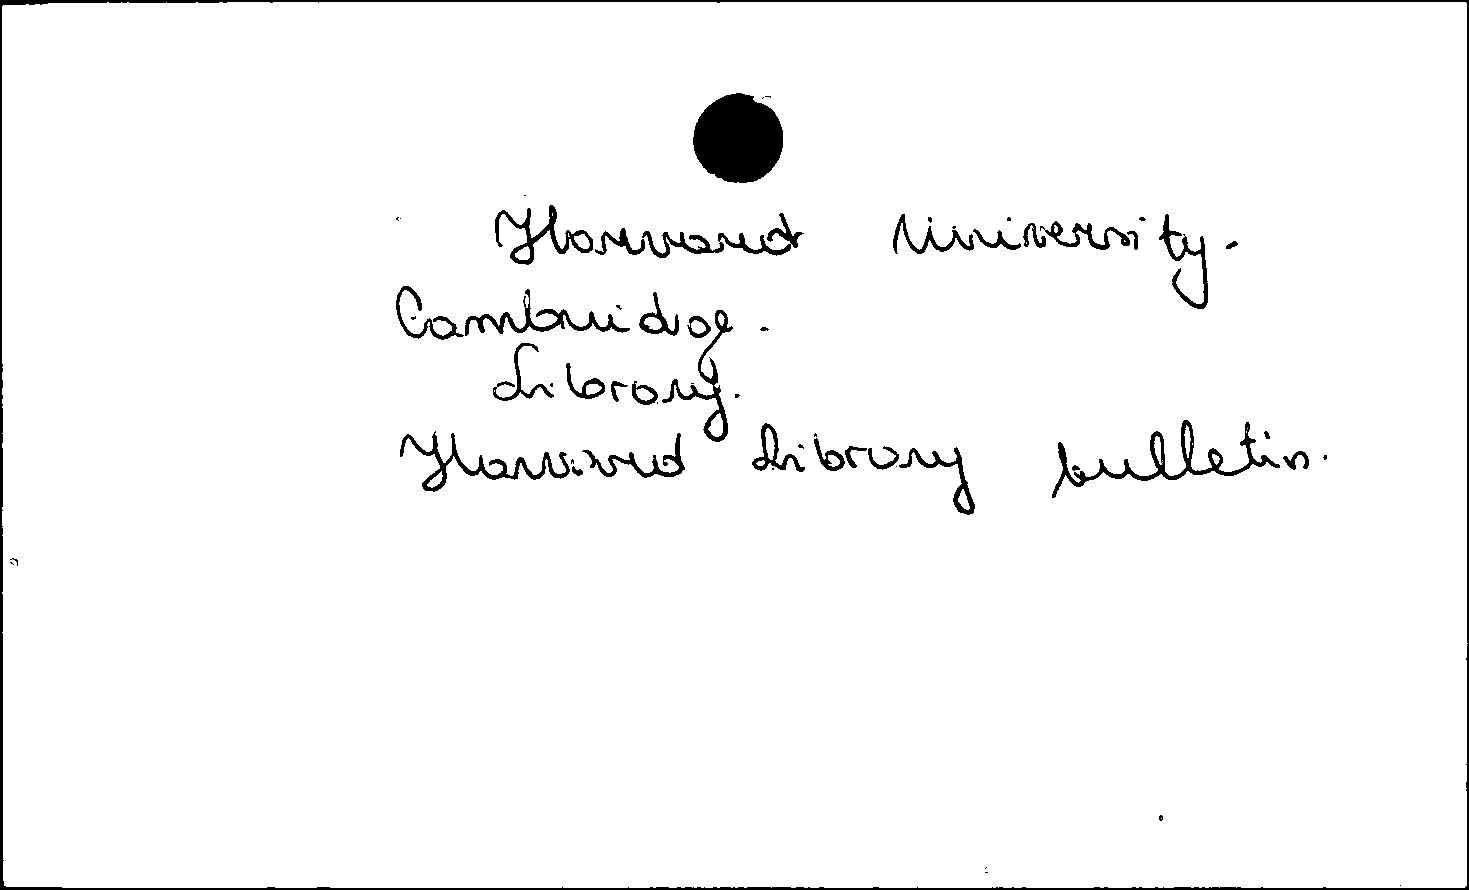 Harvard University.
Cambridge.
Library.
Harvard Library bulletin.